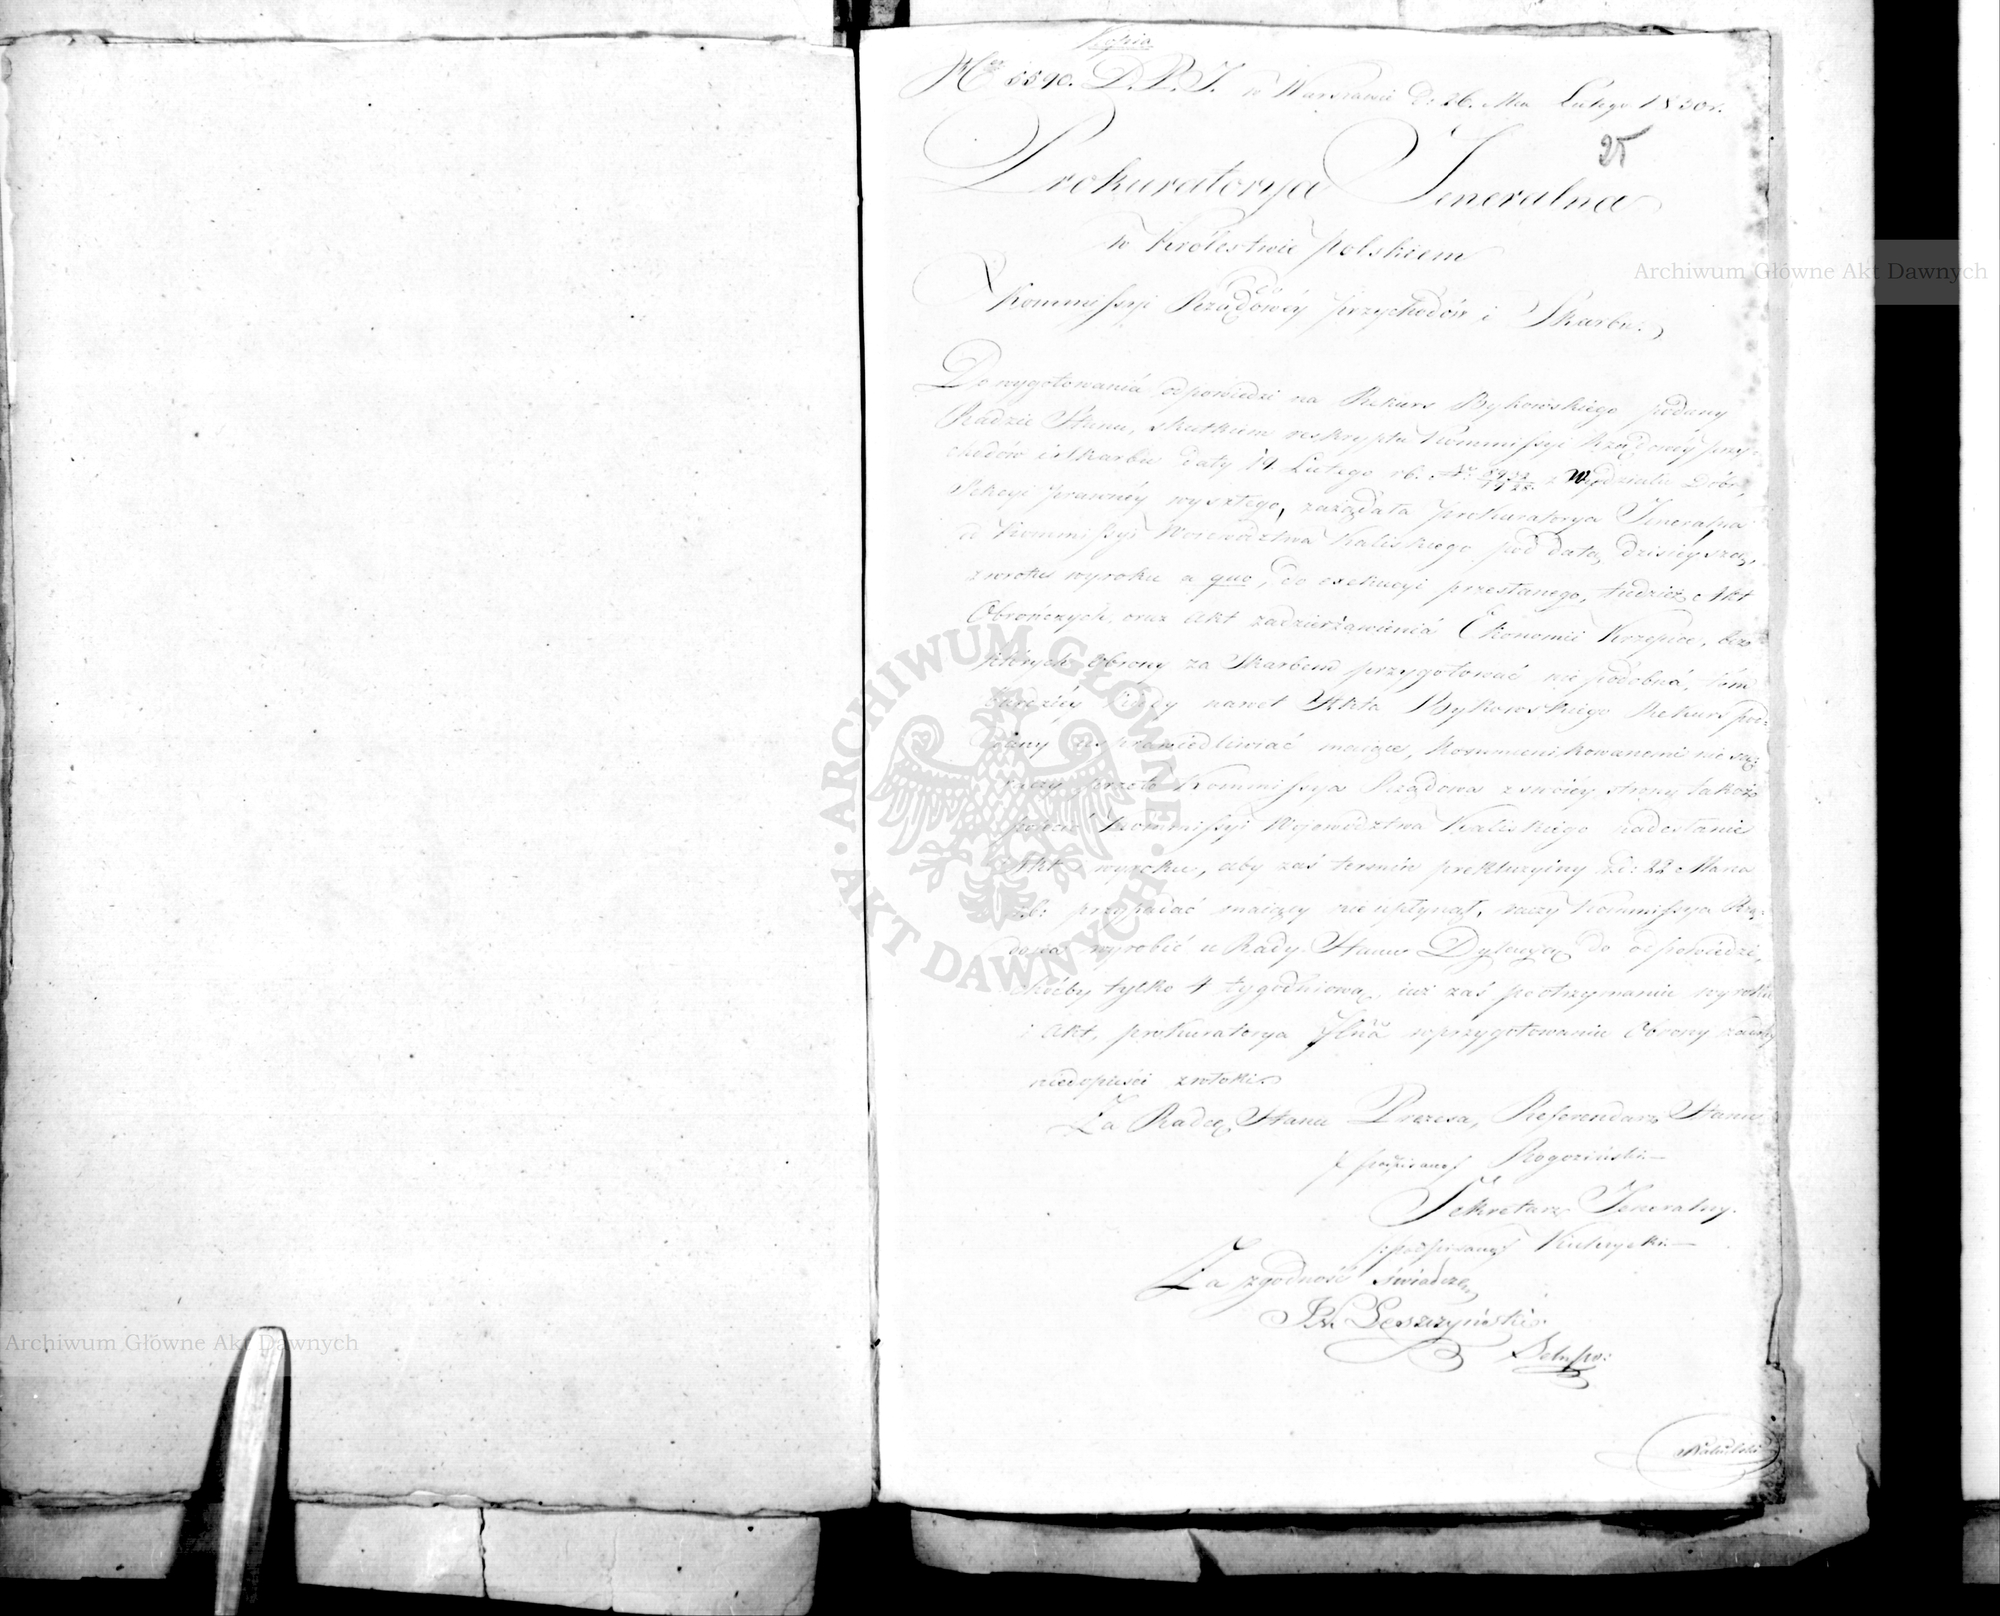 Kopia
Nro 5590. D.P.J. w Warszawie d: 26. Mca Lutego 1830r.
25
Prokuratorya Jeneralna
w Królestwie polskiem
Kommissyi Rządowéy przychodów i Skarbu.
Do wygotowania odpowiedzi na Rekurs Bykowskiego podany
Radzie Stanu, skutkiem reskryptu Kommissyi Rządowéy przy-
chodów i Skarbu daty 19 Lutego rb. Nr. z Wydziału Dóbr,
Sekcyi prawnéy wyszłego, zażądała prokuratorya Jeneralna
od Kommissyi Woiewództwa Kaliskiego pod datą dzisiéyszą,
zwrotu wyroku a quo, do exekucyi przesłanego, tudzież Akt
Obrończych, oraz Akt zadzierżawienia Ekonomii Krzepice, bez
których obrony za Skarbem przygotować nie podobna, tém
bardziéy kiedy nawet Akta Bykowskiego Rekurs po-
dany usprawiedliwiać maiące, kommunikowanemi nie są,
raczy przeto Kommissya Rządowa z swoiéy strony także
polecić Kommissyi Wojewódzwa Kaliskiego nadesłanie
Akt i wyroku, aby zaś termin prekluzyiny d: 22 Marca
rb: przypadać maiący nie upłynął, raczy Kommissya Rzą-
dowa wyrobić u Rady Stanu Dylacyą do odpowiedzi,
choćby tylko 4 tygodniową, iuż zaś po otrzymaniu wyroku
i Akt, prokuratorya Jlna w przygotowaniu Obrony
niedopuści zwłoki.
Za Radcę Stanu Prezesa, Referendarz Stanu
/podpisany/ Rogoziński
Sekretarz Jeneralny.
/:podpisany/
Za zgodność świadczę
Leszczyński
Archiwum Główne Akt Dawnych
Archiwum Główne Akt Dawnych
ARCHIWUM GŁÓWNE · AKT DAWNYCH ·